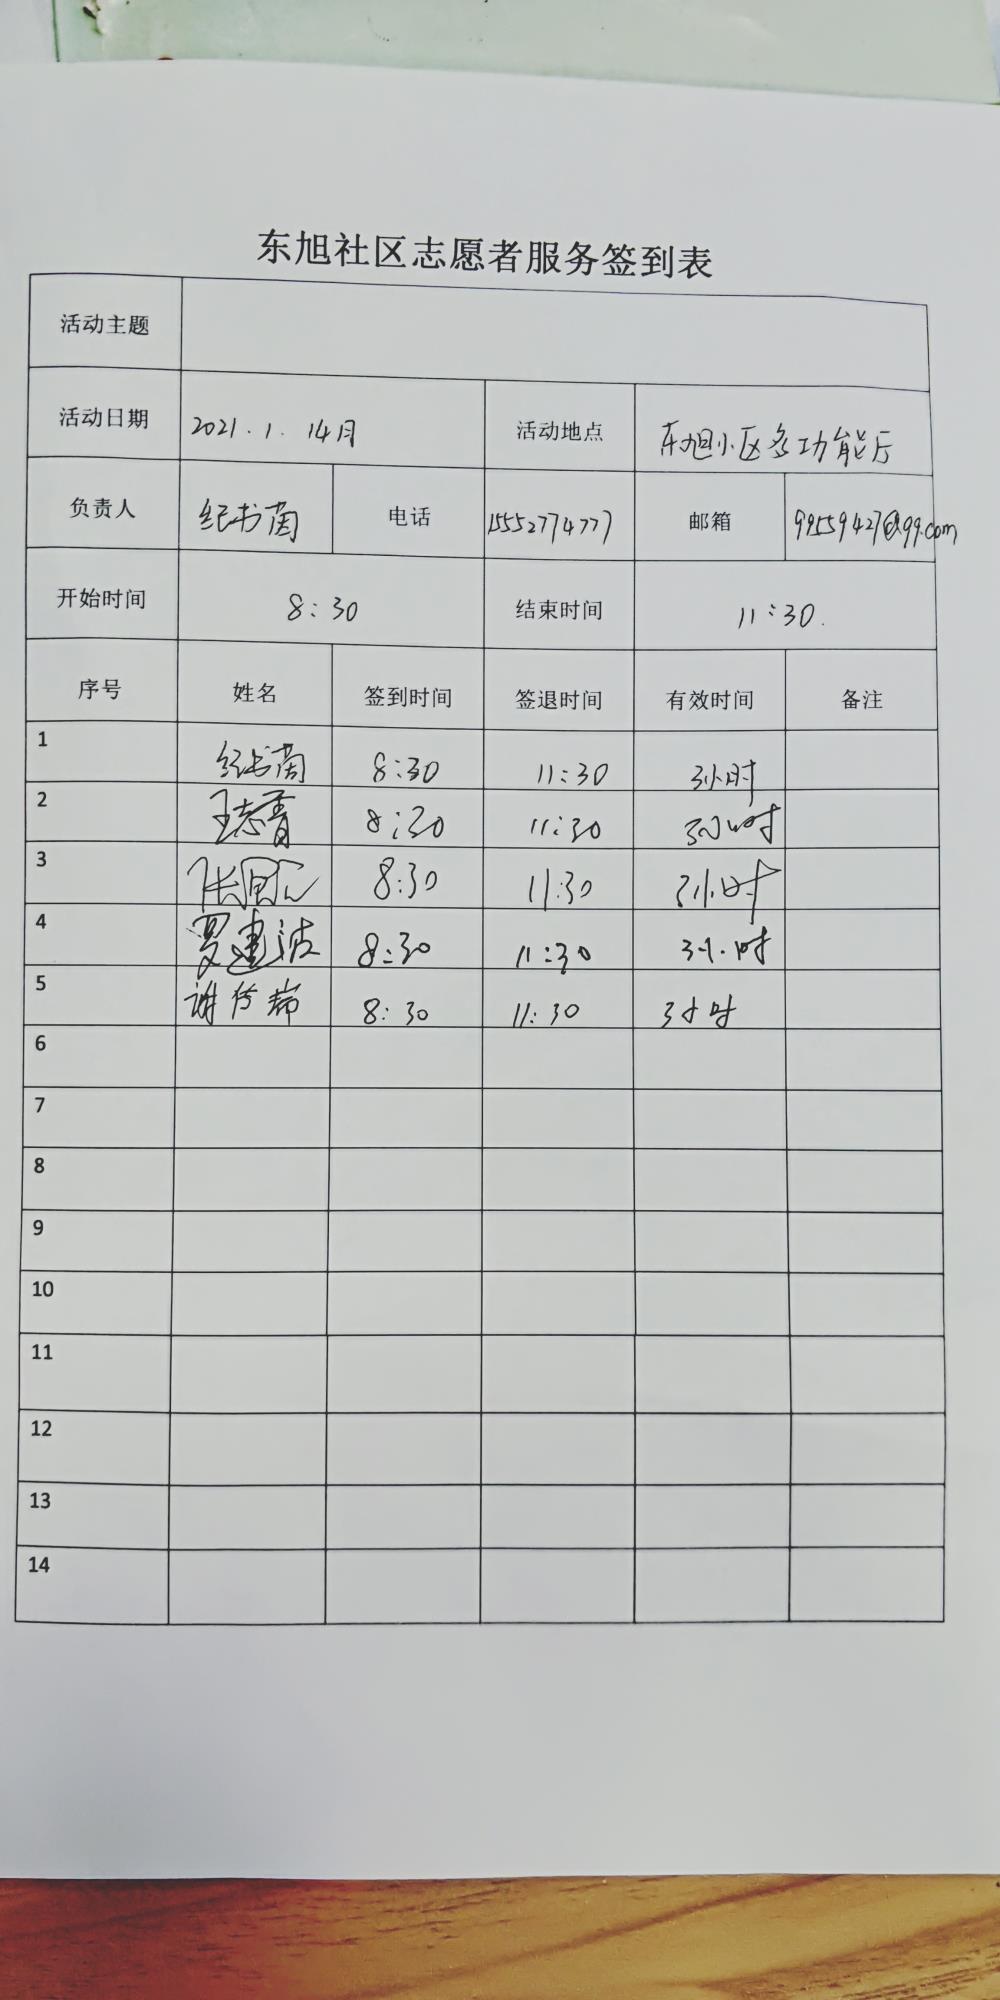 东旭社区志愿者服务签到表
活动主题
活动日期 2021.1.14月 活动地点 东旭小区多功能厅
负责人 纪书菌 电话 15552774777 邮箱 99559427@qq.com
开始时间 8:30 结束时间 11:30.
序号 姓名 签到时间 签退时间 有效时间 备注
1 纪书菌 8:30 11:30 3小时
2 王志青 8:30 11:30 3小时
3 8:30 11:30 3小时
4 罗建波 8:30 11:30 3小时
5 谢传瑞 8:30 11:30 3小时
6
7
8
9
10
11
12
13
14